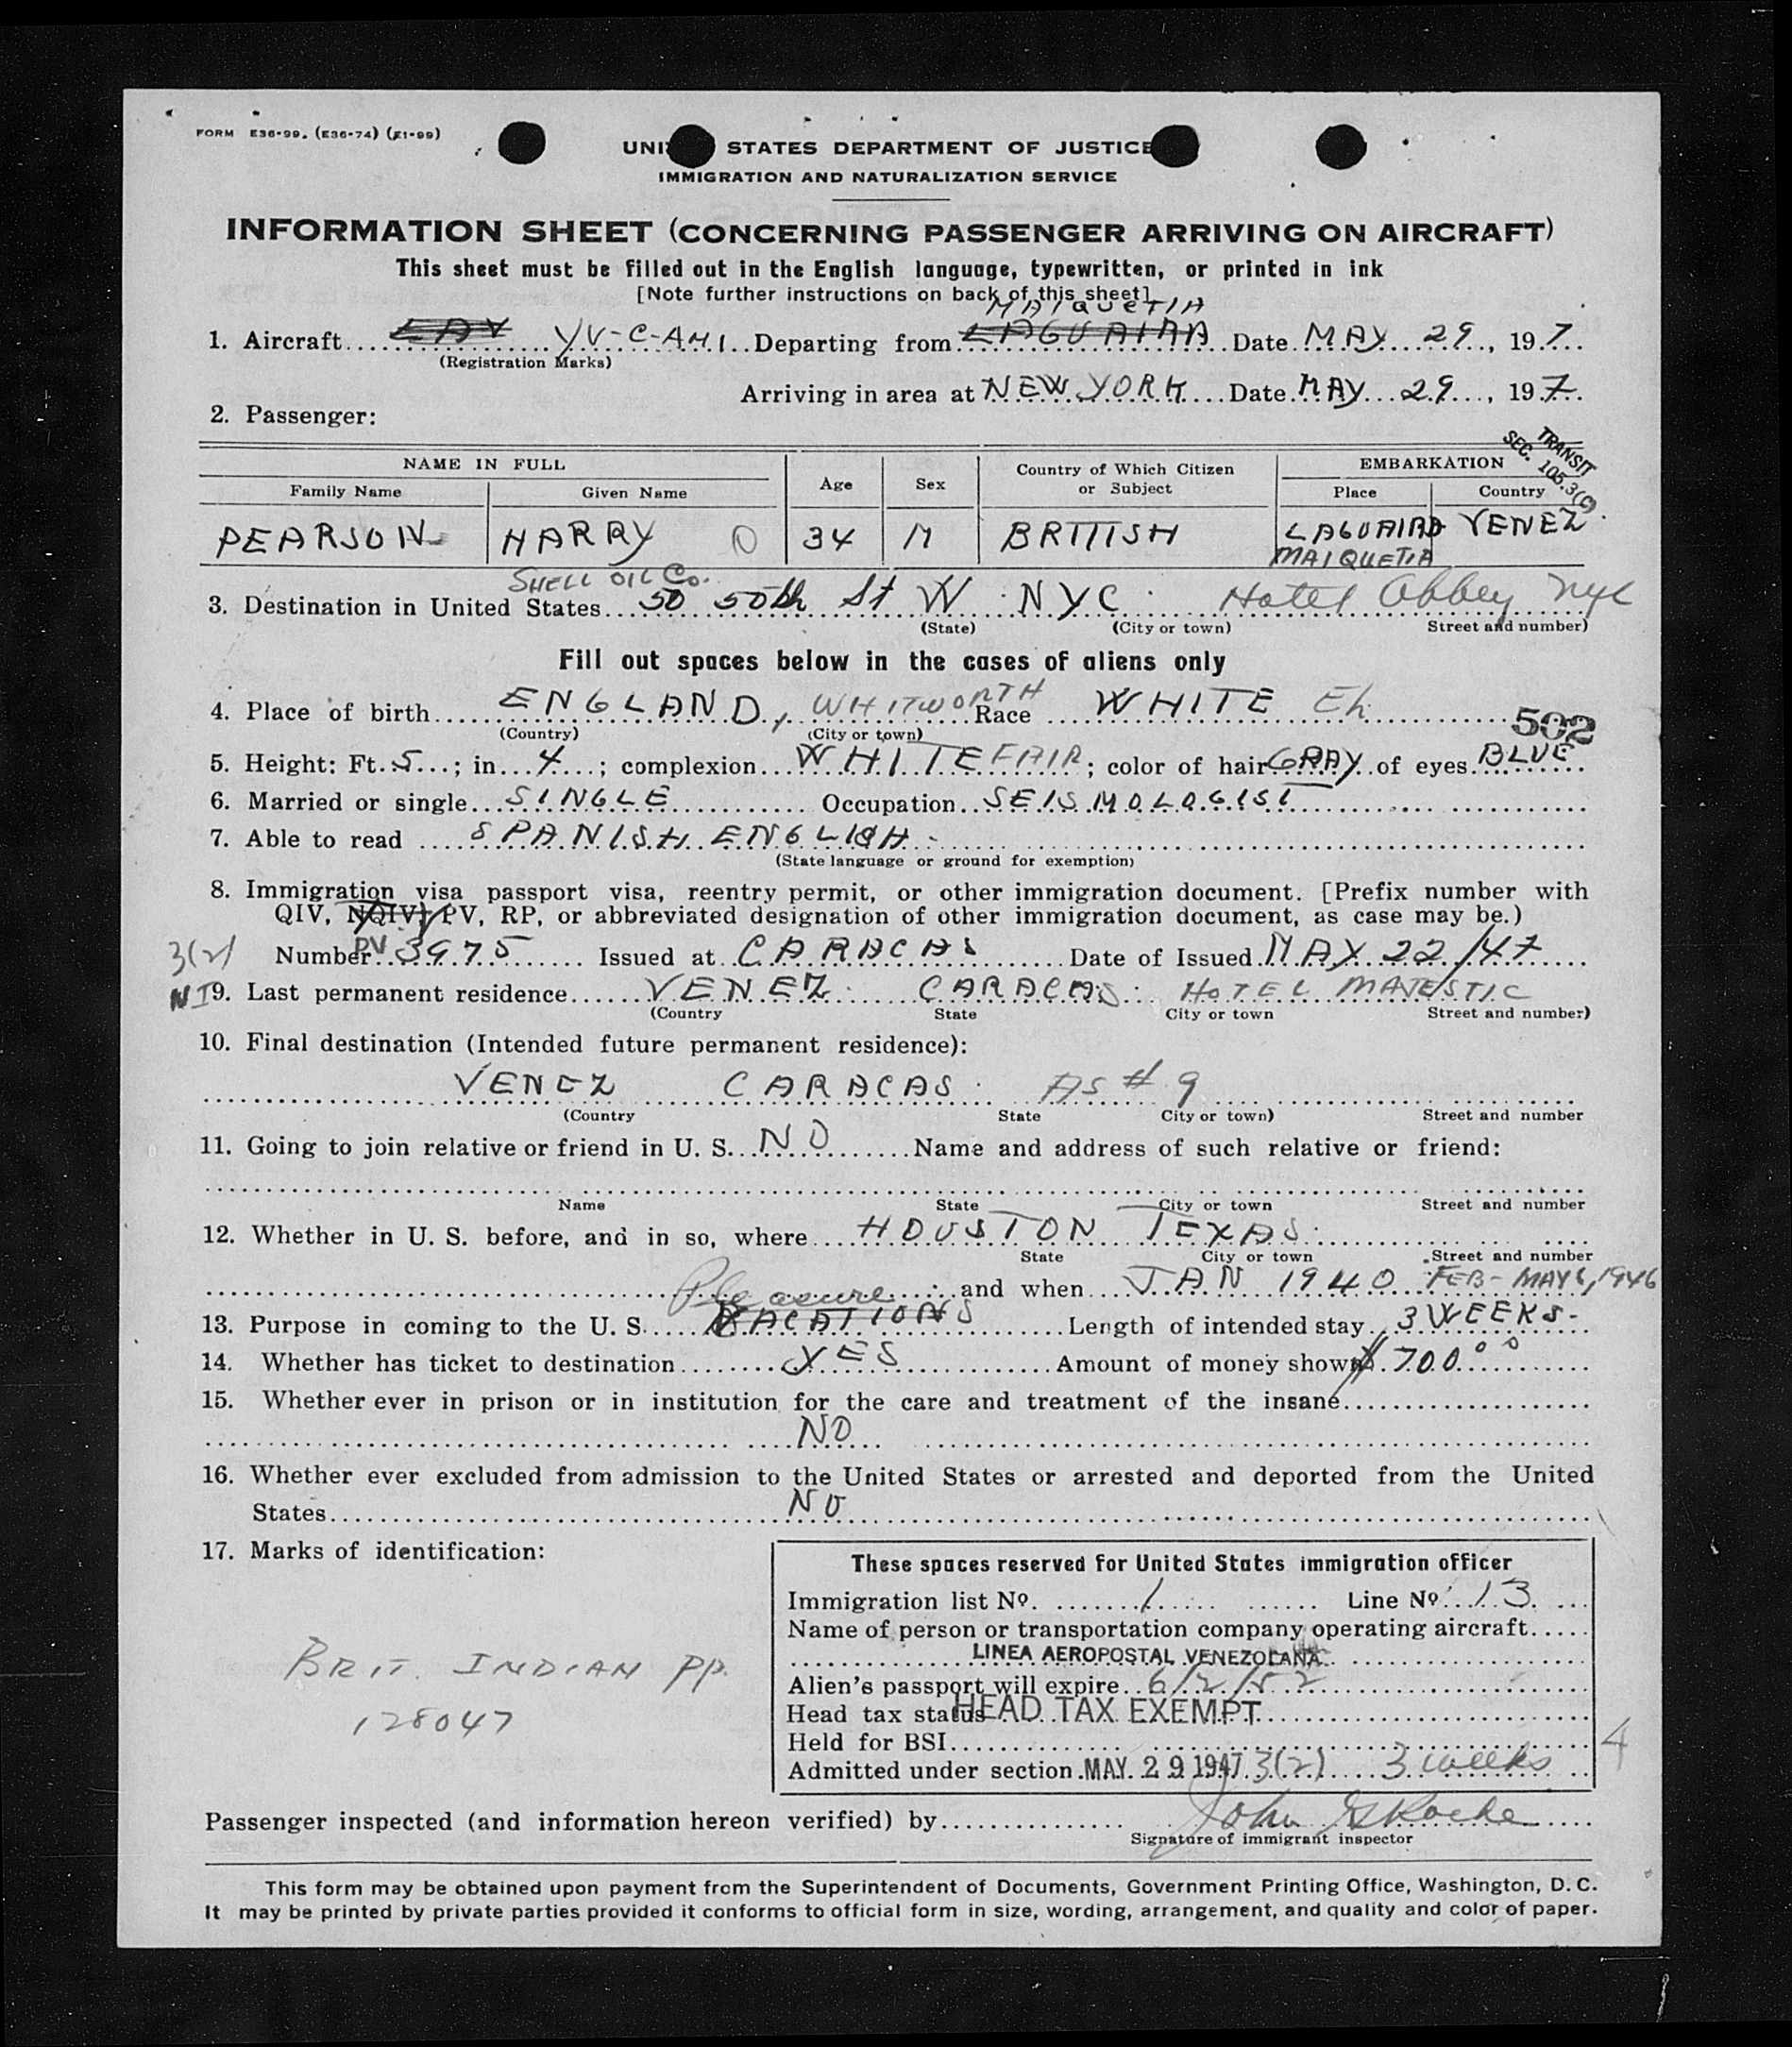 FORM E36-99. (E36-74) (E1-99)
STATES DEPARTMENT OF JUSTICE
IMMIGRATION AND NATURALIZATION SERVICE
INFORMATION SHEET (CONCERNING PASSENGER ARRIVING ON AIRCRAFT)
This sheet must be filled out in the English language, typewritten, or printed in ink
[Note further instructions on back of this sheet]
MAIQUETIA
1. Aircraft LAV YV-C-AMI Departing from LAGUAIRA Date MAY 29, 197
(Registration Marks)
Arriving in area at NEW YORK Date MAY 29, 197
2. Passenger:
TRANSIT
SEC. 105.3(C)
NAME IN FULL Age Sex Country of Which Citizen or Subject EMBARKATION
Family Name Given Name Place Country
PEARSON HARRY 34 M BRITISH LAGUAIRA VENEZ.
MAIQUETIA
SHELL OIL Co.
3. Destination in United States 50 50th St W NYC Hotel Abbey NYC
(State) (City or town) Street and number)
Fill out spaces below in the cases of aliens only
4. Place of birth ENGLAND, WHITWORTH Race WHITE Eh
(Country) (City or town)
502
5. Height: Ft. 5; in 4; complexion WHITE FAIR; color of hair GRAY of eyes BLUE
6. Married or single SINGLE Occupation SEISMOLOGIST
7. Able to read SPANISH ENGLISH
(State language or ground for exemption)
8. Immigration visa passport visa, reentry permit, or other immigration document. [Prefix number with
QIV, NQIV, PV, RP, or abbreviated designation of other immigration document, as case may be.)
3(2) Number PV 3975 Issued at CARACAS Date of Issued MAY 22/47
NI 9. Last permanent residence VENEZ. CARACAS. HOTEL MAJESTIC
(Country State City or town Street and number)
10. Final destination (Intended future permanent residence):
VENEZ CARACAS. AS # 9
(Country State City or town) Street and number
11. Going to join relative or friend in U. S. NO Name and address of such relative or friend:
Name State City or town Street and number
12. Whether in U. S. before, and in so, where HOUSTON TEXAS.
State City or town Street and number
and when JAN 1940 FEB - MAY 6, 1946
Pleasure
13. Purpose in coming to the U. S. VACATIONS Length of intended stay 3 WEEKS-
14. Whether has ticket to destination YES Amount of money shown $ 700.00
15. Whether ever in prison or in institution for the care and treatment of the insane
NO
16. Whether ever excluded from admission to the United States or arrested and deported from the United
States NO
17. Marks of identification:
BRIT. INDIAN PP.
128047
These spaces reserved for United States immigration officer
Immigration list No. 1 Line No. 13
Name of person or transportation company operating aircraft
LINEA AEROPOSTAL VENEZOLANA
Alien's passport will expire 6/2/52
Head tax status HEAD TAX EXEMPT
Held for BSI
4
Admitted under section MAY 29 1947 3(2) 3 weeks
Passenger inspected (and information hereon verified) by John Roche
Signature of immigrant inspector
This form may be obtained upon payment from the Superintendent of Documents, Government Printing Office, Washington, D. C.
It may be printed by private parties provided it conforms to official form in size, wording, arrangement, and quality and color of paper.